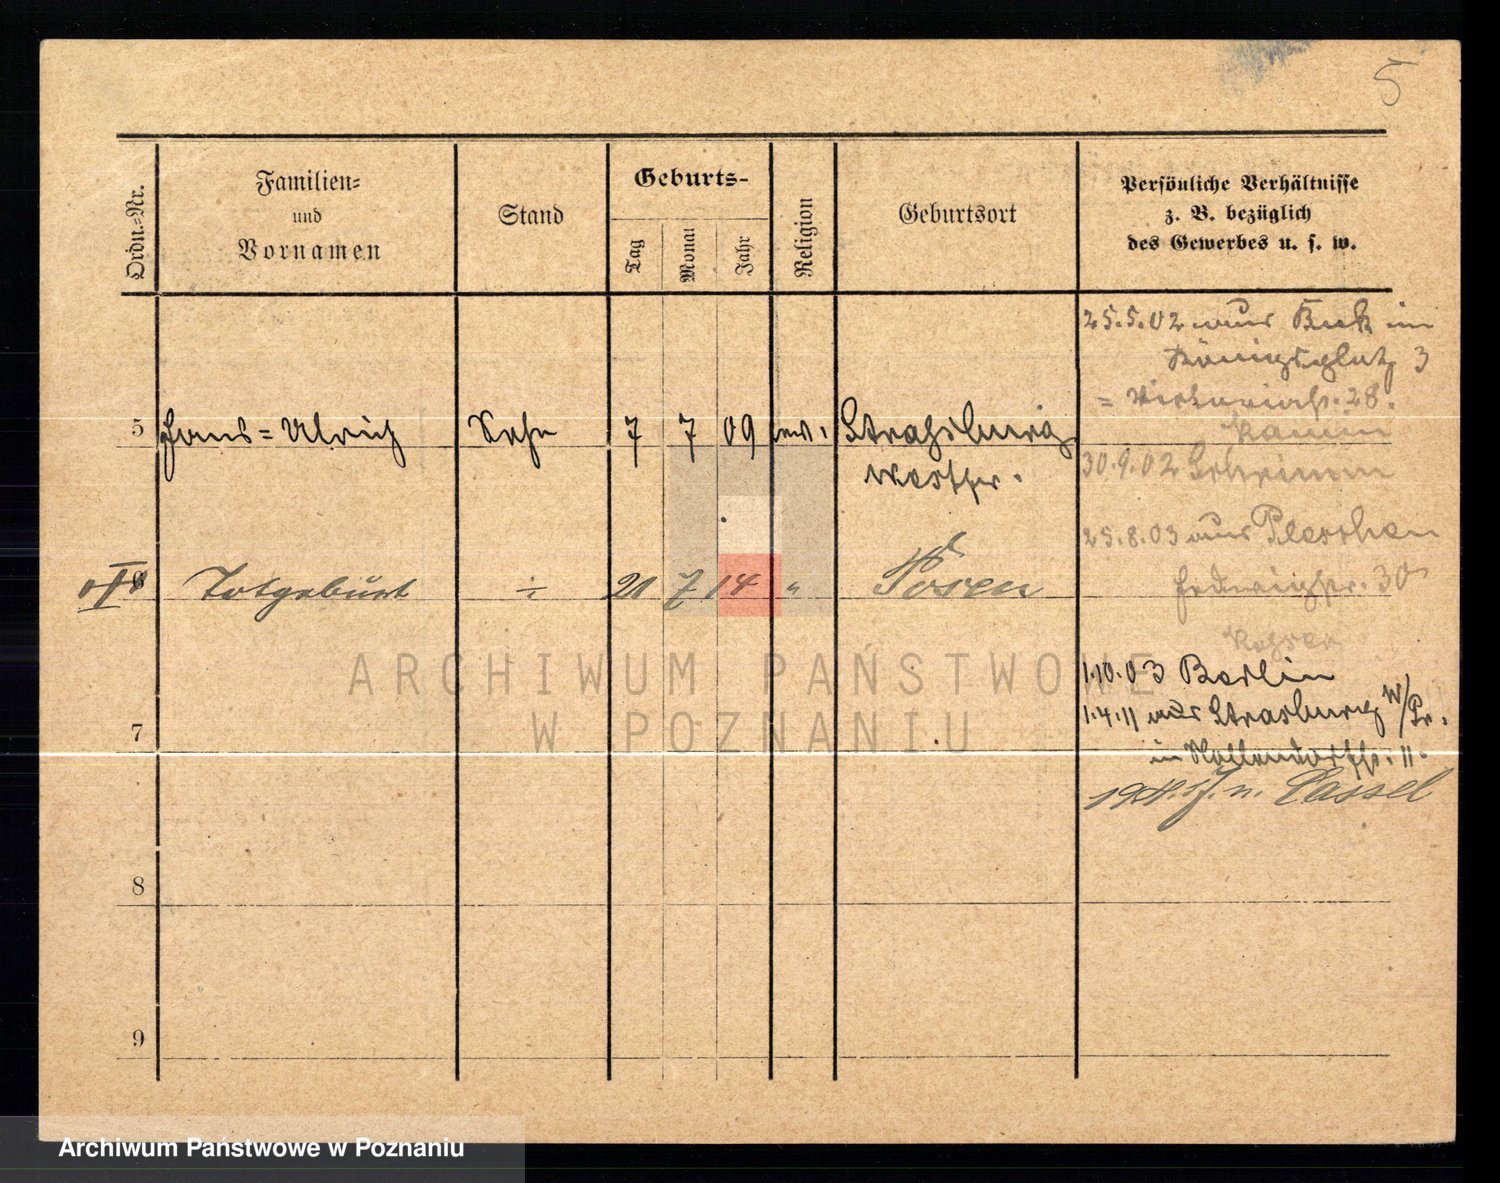 5
Ordn.-Nr.
Familien-
und
Vornamen
Stand
Geburts-
Tag
Monat
Jahr
Religion
Geburtsort
Persönliche Verhältnisse
z. B. bezüglich
des Gewerbes u. s. w.
5
Hans-Ulrich
Sohn
7
7
09
ev.
Straßburg
Westpr.
Totgeburt
÷
21
7
14
"
Posen
7
8
9
25.5.02 aus Buk in
Königsplatz 3
= Victoriastr. 28.
Kamin
30.9.02 Schrimm
25.8.03 aus Pleschen
Hedwigstr. 30
1.10.03 Berlin
1.4.11 aus Strasburg W/Pr.
in Hollendorffstr. 11.
n. Cassel
ARCHIWUM PAŃSTWOWE
W POZNANIU
Archiwum Państwowe w Poznaniu